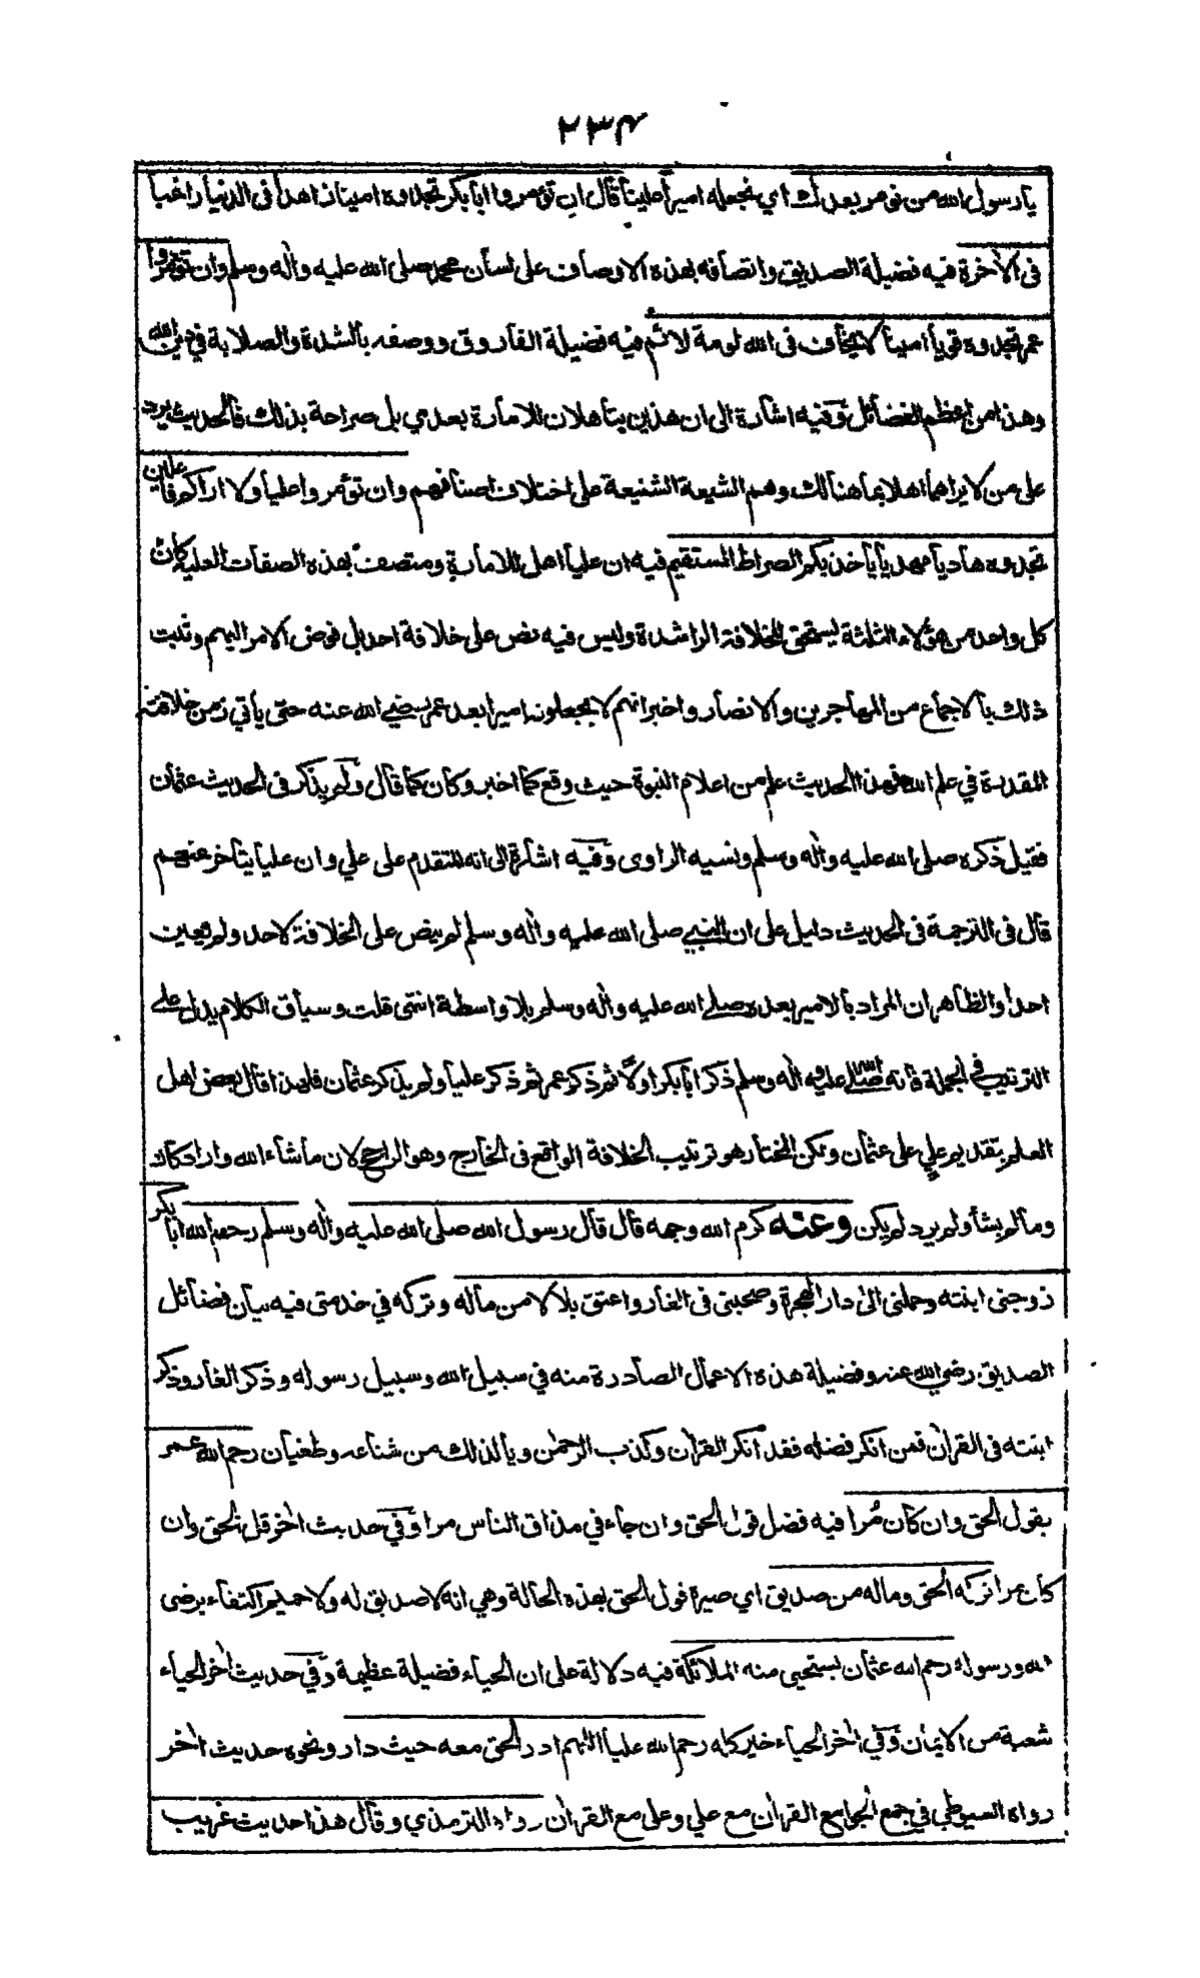 ٢٣٤
يا رسول الله من نومر بعدك اي نجعله اميرا علينا قال ان تؤمروا ابا بكر تجدوه امينا زاهدا فى الدنيا راغبا
فى الاخرة فيه فضيلة الصديق واتصافه بهذه الاوصاف على لسان محمد صلى الله عليه واله وسلم وان تؤمروا
عمر تجدوه قويا امينا لا يخاف فى الله لومة لائم فيه فضيلة الفاروق ووصفه بالشدة والصلابة في دين الله
وهذا من اعظم الفضائل وفيه اشارة الى ان هذين يتأهلان للامارة بعدي بل صراحة بذلك فالحديث يرد
على من لا يراهما اهلا بما هنالك وهم الشيعة الشنيعة على اختلاف اصنافهم وان تؤمروا عليا ولا اراكم فاعلين
تجدوه هاديا مهديا يأخذ بكم الصراط المستقيم فيه ان عليا اهل للامارة ومتصف بهذه الصفات العلية كان
كل واحد من هؤلاء الثلثة ليستحق للخلافة الراشدة وليس فيه نص على خلافة احد بل فوض الامر اليهم وثبت
ذلك بالاجماع من المهاجرين والانصار واخبر انهم لا يجعلونه اميرا بعد عمر رضي الله عنه حتى يأتي زمن خلافته
المقدرة في علم الله فهذا الحديث علم من اعلام النبوة حيث وقع كما اخبر وكان كما قال ولم يذكر فى الحديث عثمان
فقيل ذكره صلى الله عليه واله وسلم ونسيه الراوى وفيه اشارة الى انه المتقدم على علي وان عليا يتأخر عنهم
قال فى الترجمة فى الحديث دليل على ان النبي صلى الله عليه واله وسلم لم ينص على الخلافة لاحد ولم يعين
احدا والظاهر ان المراد بالامير بعده صلى الله عليه واله وسلم بلا واسطة انتهى قلت وسياق الكلام يدل على
الترتيب في الجملة فانه صلى الله عليه واله وسلم ذكر ابا بكر اولا ثم ذكر عمر ثم ذكر عليا ولم يذكر عثمان فلهذا قال بعض اهل
العلم بتقديم علي على عثمان ولكن المختار هو ترتيب الخلافة الواقع فى الخارج وهو الراجح لان ما شاء الله واراد كان
وما لم يشأ ولم يرد لم يكن وعنه كرم الله وجهه قال قال رسول الله صلى الله عليه واله وسلم رحم الله ابا بكر
زوجنى ابنته وحملنى الى دار الهجرة وصحبنى فى الغار واعتق بلالا من ماله وتركه في خدمتى فيه بيان فضائل
الصديق رضي الله عنه وفضيلة هذه الاعمال الصادرة منه في سبيل الله وسبيل رسوله وذكر الغار وذكر
ابنته فى القران فمن انكر فضله فقد انكر القران وكذب الرحمن ويا لذلك من شناعه وطغيان رحم الله عمر
يقول الحق وان كان مُرا فيه فضل قول الحق وان جاء في مذاق الناس مرا وفي حديث اخر قل الحق وان
كان مرا تركه الحق وماله من صديق اي صيره قول الحق بهذه الحالة وهي انه لا صديق له ولا حميم اكتفاء برضى
الله ورسوله رحم الله عثمان يستحيى منه الملائكة فيه دلالة على ان الحياء فضيلة عظيمة وفي حديث اخر الحياء
شعبة من الايمان وفي اخر الحياء خير كله رحم الله عليا اللهم ادر الحق معه حيث دار ونحوه حديث اخر
رواه السيوطي في جمع الجوامع القران مع علي وعلى مع القران رواه الترمذي وقال هذا حديث غريب